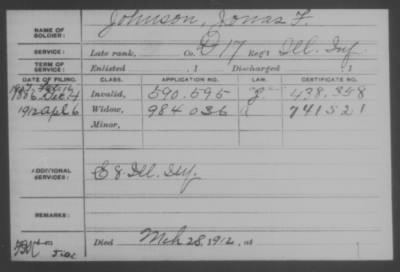 NAME OF SOLDIER: Johnson, Jonas F.
SERVICE: Late rank, Co. D 17 Reg't Ill. Inf.
TERM OF SERVICE: Enlisted , 1 Discharged , 1
DATE OF FILING. CLASS. APPLICATION NO. LAW. CERTIFICATE NO.
1886 Dec. 4 Invalid, 590.595 "g" 438,358
1912 Apl 6 Widow, 984 036 741521
Minor,
ADDITIONAL SERVICES: E 8 Ill. Inf.
REMARKS:
Died Mch 28, 1912, at